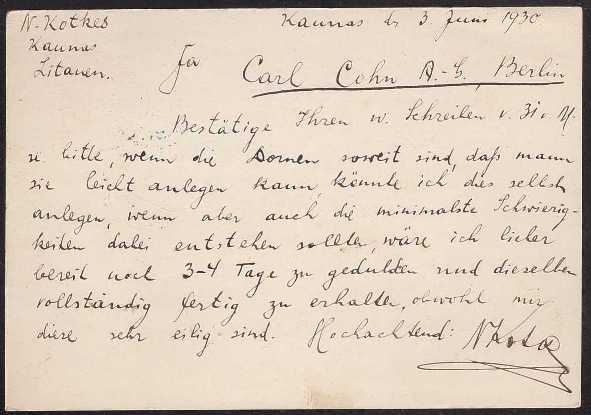 N. Kotkes
Kaunas
Litauen.
Kaunas d. 3 Juni 1930
Fa
Carl Cohn A.-G., Berlin
Bestätige Ihren w. Schreiben v. 31 v. M.
u. bitte, wenn die Dornen soweit sind, daß mann
sie leicht anlegen kann, könnte ich dies selbst
anlegen, wenn aber auch die minimalste Schwierig-
keiten dabei entstehen sollten, wäre ich lieber
bereit noch 3-4 Tage zu gedulden und dieselben
vollständig fertig zu erhalten, obwohl mir
diese sehr eilig sind. Hochachtend: